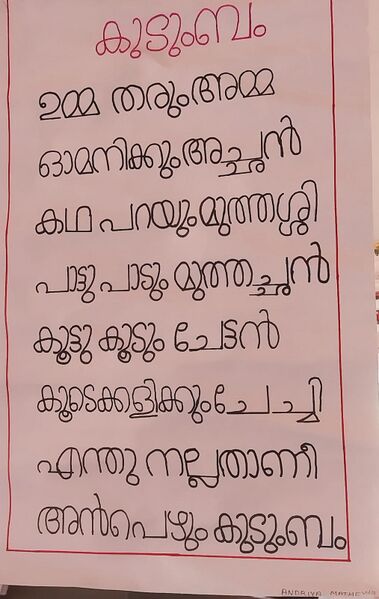 കുടുംബം
ഉമ്മ തരുംഅമ്മ
ഓമനിക്കുംഅച്ഛൻ
കഥ പറയുംമുത്തശ്ശി
പാട്ടു പാടും മുത്തച്ഛൻ
കൂട്ടു കൂടും ചേട്ടൻ
കൂടെക്കളിക്കുംചേച്ചി
എന്തു നല്ലതാണീ
അൻപെഴും കുടുംബം
ANDRIYA MATHEWS